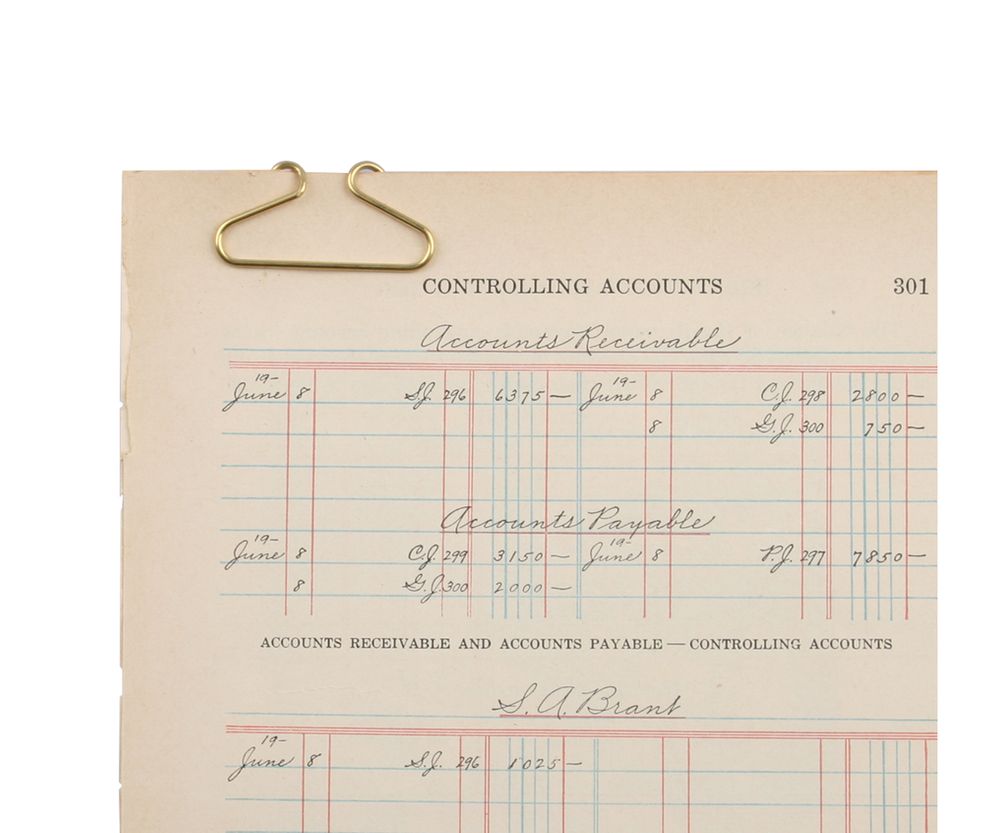 CONTROLLING ACCOUNTS 301
Accounts Receivable
19- 19-
June 8 S.J. 296 6375 — June 8 C.J. 298 2800 —
8 G.J. 300 750 —
Accounts Payable
19- 19-
June 8 C.J. 299 3150 — June 8 P.J. 297 7850 —
8 G.J. 300 2000 —
ACCOUNTS RECEIVABLE AND ACCOUNTS PAYABLE — CONTROLLING ACCOUNTS
S. A. Brant
19-
June 8 S.J. 296 1025 —